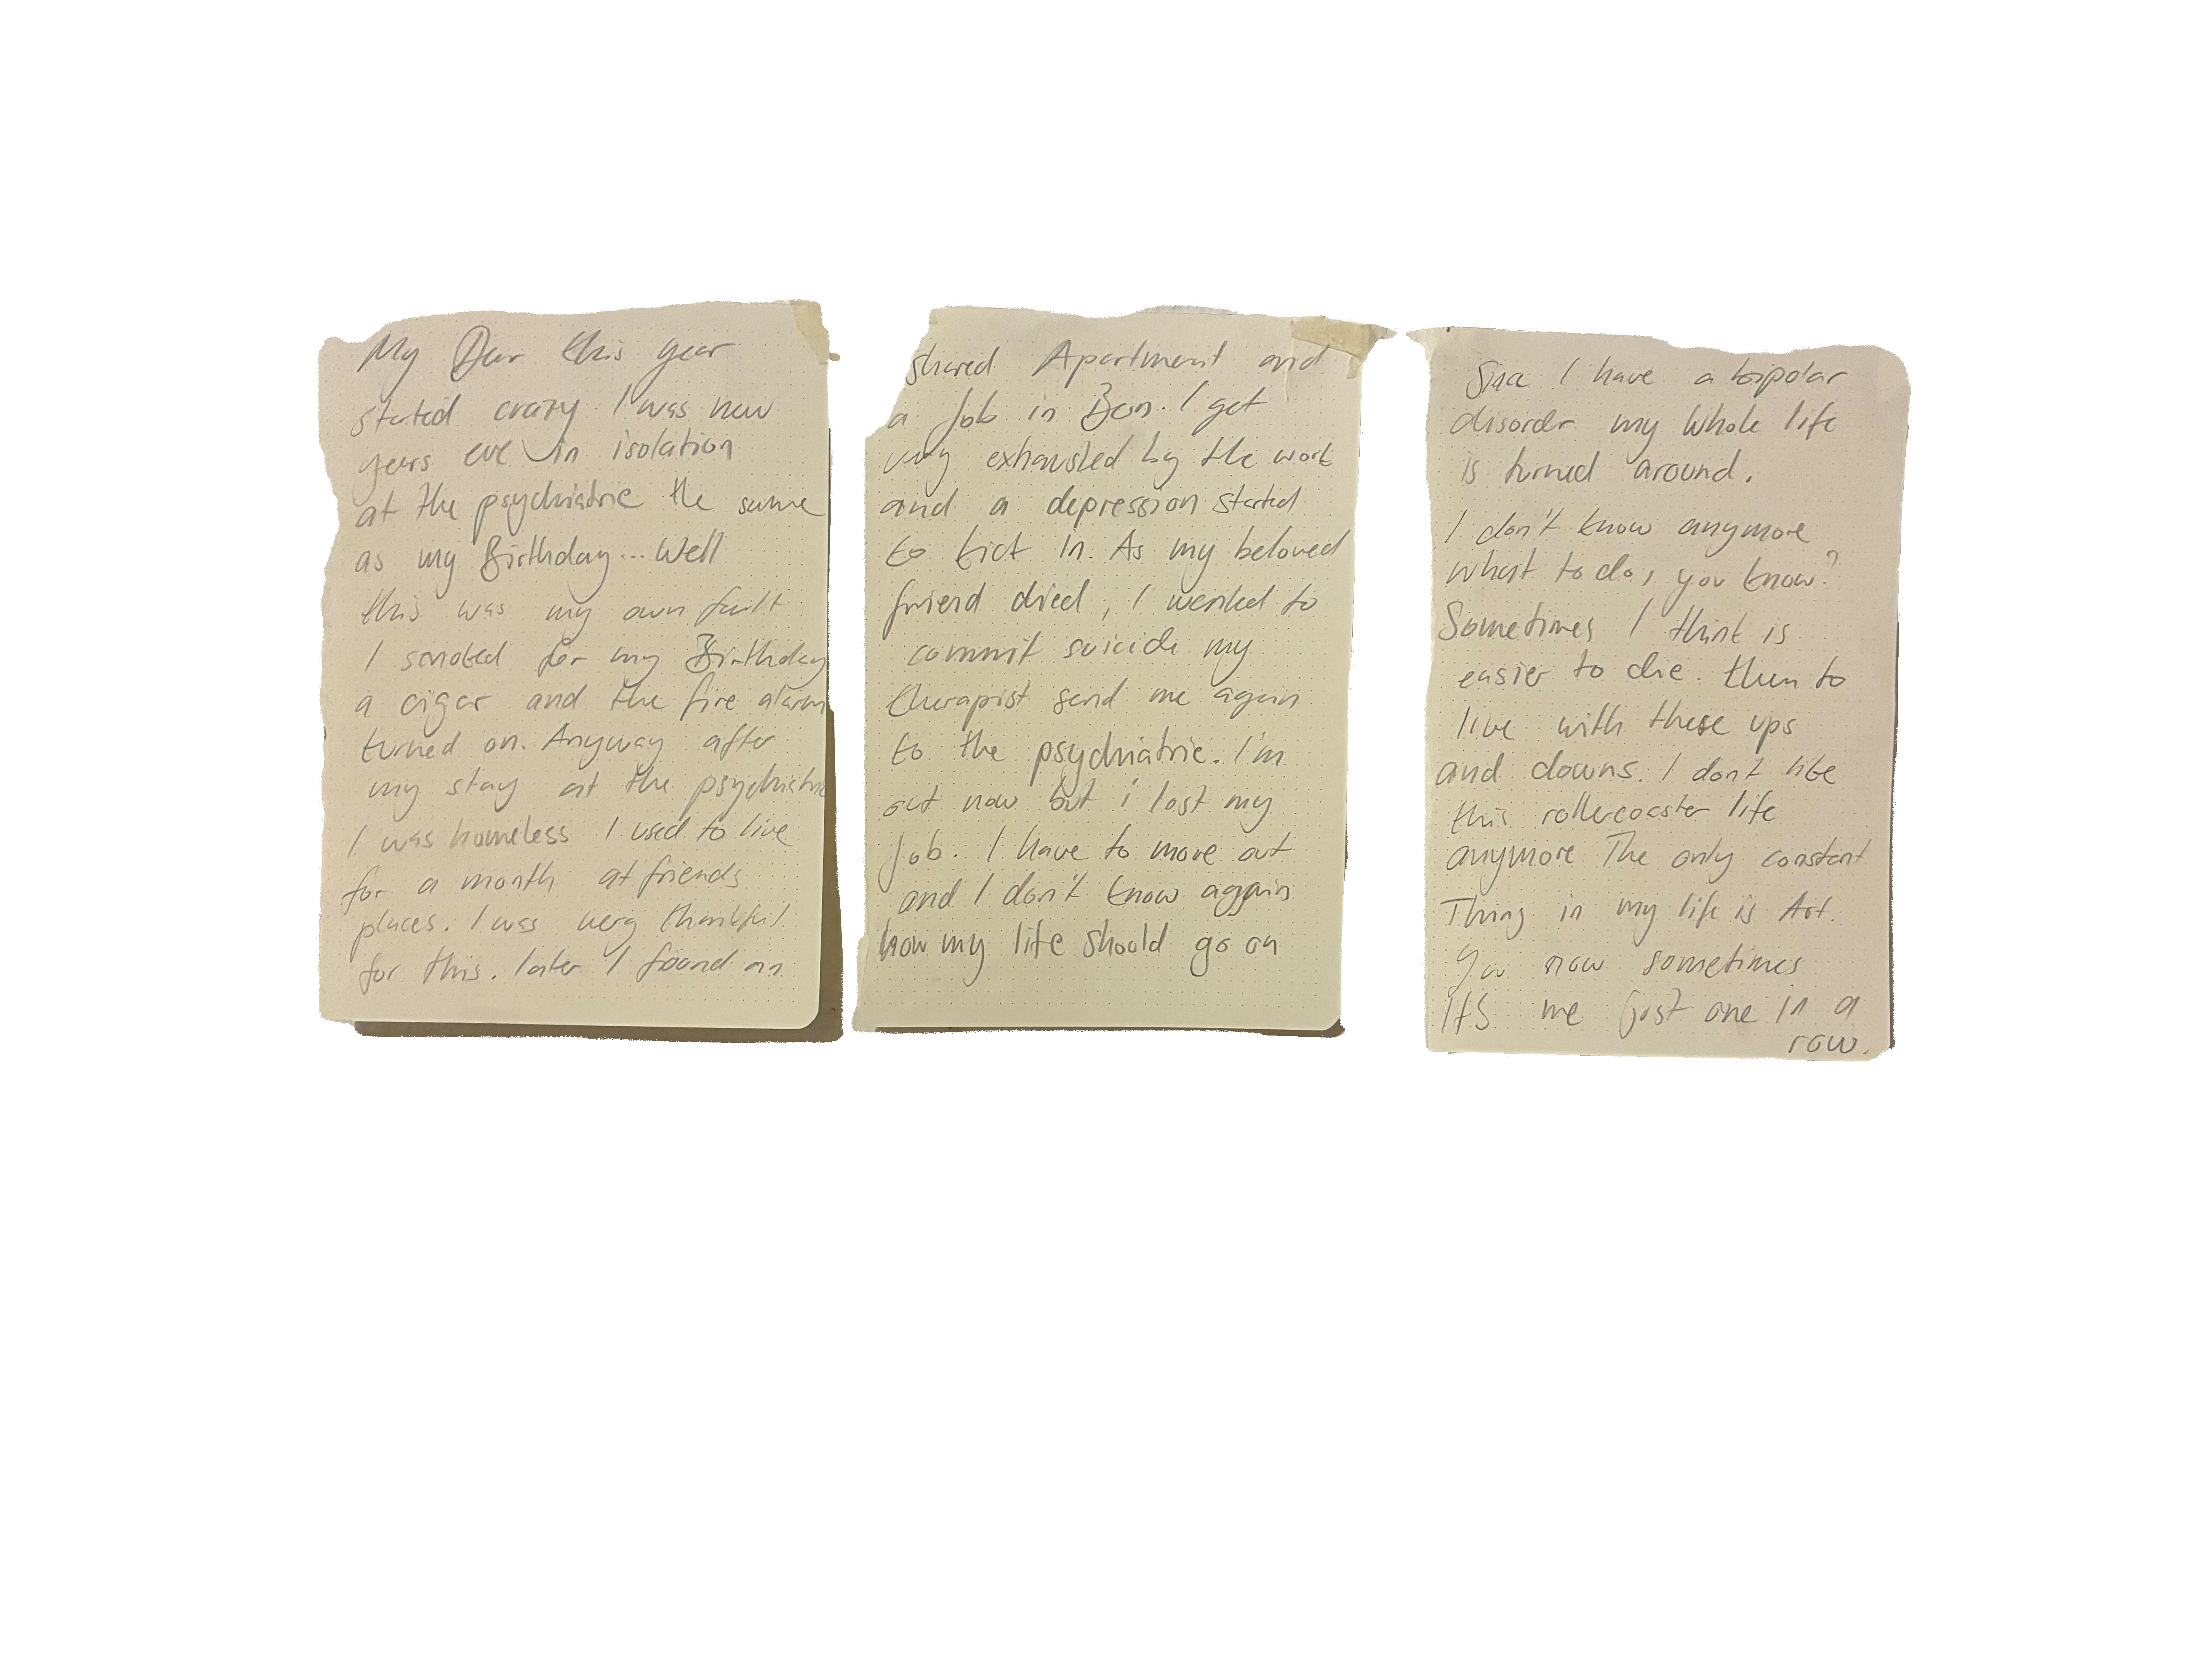 My Dear this year
started crazy I was new
years eve in isolation
at the psychiatrie the same
as my Birthday... Well
this was my own fault
I smoked for my Birthday
a cigar and the fire alarm
turned on. Anyway after
my stay at the psychiatrie
I was homeless I used to live
for a month at friends
places. I was very thankful
for this. later I found an
shared Apartment and
a Job in Bern. I get
very exhausted by the work
and a depression started
to kick in. As my beloved
friend died, I wented to
commit suicide my
therapist send me again
to the psychiatrie. I'm
out now but i lost my
Job. I have to move out
and I don't know again
how my life should go on
Since I have a bipolar
disorder my Whole life
is turned around.
I don't know anymore
what to do, you know?
Sometimes I think is
easier to die. then to
live with these ups
and downs. I don't like
this rollercoaster life
anymore The only constant
Thing in my life is Art.
You now sometimes
It's me just one in a
row.